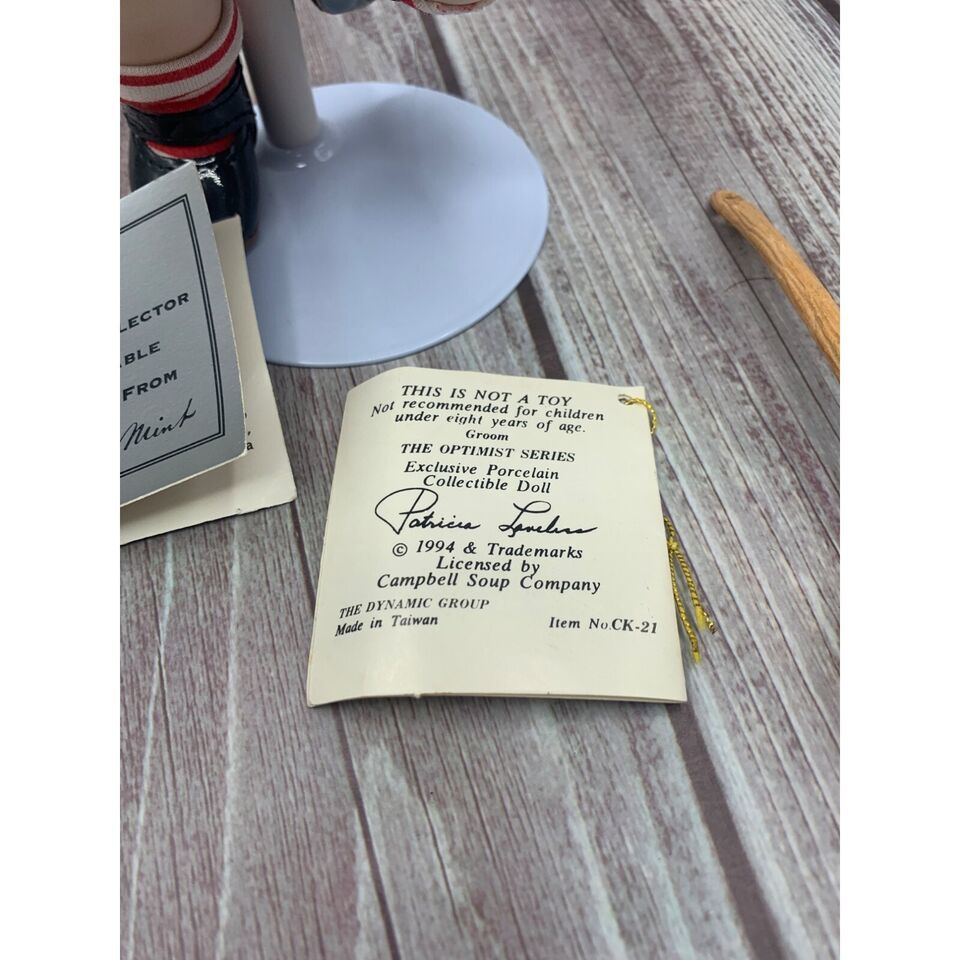 LECTOR
ABLE
FROM
Mint
a
THIS IS NOT A TOY
Not recommended for children
under eight years of age.
Groom
THE OPTIMIST SERIES
Exclusive Porcelain
Collectible Doll
Patricia Loveless
© 1994 & Trademarks
Licensed by
Campbell Soup Company
THE DYNAMIC GROUP
Made in Taiwan
Item No.CK-21